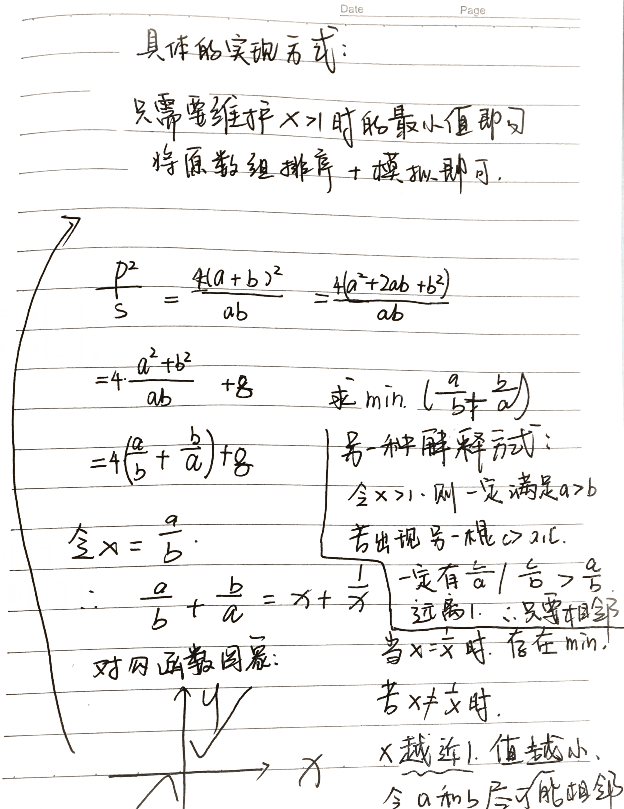 Date Page
具体的实现方式:
只需要维护 x>1 时的最小值即可
将原数组排序 + 模拟即可.
P²/S = 4(a+b)²/ab = 4(a²+2ab+b²)/ab
=4·(a²+b²)/ab +8
=4(a/b + b/a)+8
令 x = a/b.
∴ a/b + b/a = x + 1/x
对勾函数图象:
y
x
求 min. (a/b + b/a)
另一种解释方式:
令 x>1. 则一定满足 a>b
若出现另一根 c>
一定有 c/a / c/b > a/b
远离1. ∴只要相邻
当 x=1/x 时. 存在 min.
若 x≠1/x 时.
x 越近1. 值越小.
令 a 和 b 尽可能相邻